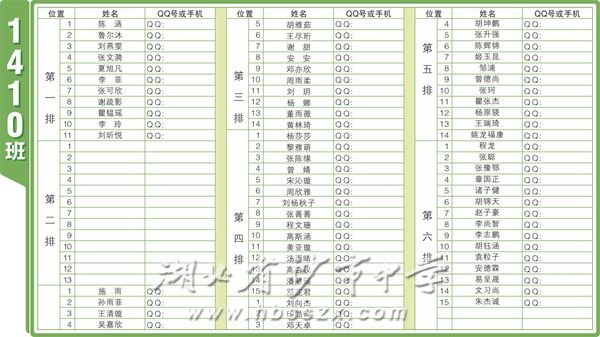 1410班
位置 姓名 QQ号或手机
第一排
1 陈涵 QQ:
2 鲁尔沐 QQ:
3 刘燕雯 QQ:
4 张文漪 QQ:
5 夏旭凡 QQ:
6 李菲 QQ:
7 张可欣 QQ:
8 谢疏影 QQ:
9 瞿韫瑶 QQ:
10 李玲 QQ:
11 刘昕悦 QQ:
第二排
1 QQ:
2 QQ:
3 QQ:
4 QQ:
5 QQ:
6 QQ:
7 QQ:
8 QQ:
9 QQ:
10 QQ:
11 QQ:
12 QQ:
13 QQ:
施雨 QQ:
2 孙雨菲 QQ:
3 王清璇 QQ:
4 吴嘉欣 QQ:
位置 姓名 QQ号或手机
第三排
5 胡雅茹 QQ:
6 王尽珩 QQ:
7 谢甜 QQ:
8 安安 QQ:
9 邓亦欣 QQ:
10 周雨柔 QQ:
11 刘玥 QQ:
12 杨娜 QQ:
13 董雨薇 QQ:
14 黄林琦 QQ:
第四排
1 杨莎莎 QQ:
2 黎雅萌 QQ:
3 张陈缘 QQ:
4 曾婧 QQ:
5 宋沁璇 QQ:
6 周欣雅 QQ:
7 刘杨秋子 QQ:
8 张菁菁 QQ:
9 程文珊 QQ:
10 高斯涵 QQ:
11 姜亚璇 QQ:
12 QQ:
13 QQ:
14 QQ:
15 QQ:
1 刘向杰 QQ:
2 QQ:
3 邓天卓 QQ:
位置 姓名 QQ号或手机
第五排
4 胡坤鹏 QQ:
5 张升强 QQ:
6 陈辉锦 QQ:
7 姬玉昆 QQ:
8 邹浦 QQ:
9 曾德尚 QQ:
10 张珂 QQ:
11 瞿张杰 QQ:
12 杨原骁 QQ:
13 王瑞琦 QQ:
14 姚龙福康 QQ:
第六排
1 程龙 QQ:
2 张聪 QQ:
3 张豫鄂 QQ:
4 章国正 QQ:
5 诸子健 QQ:
6 胡锦天 QQ:
7 赵子豪 QQ:
8 李尚智 QQ:
9 李志鹏 QQ:
10 胡钰涵 QQ:
11 袁粒子 QQ:
12 安德霖 QQ:
13 易呈晟 QQ:
14 文习尚 QQ:
15 朱杰诚 QQ:
湖北省沙市中学